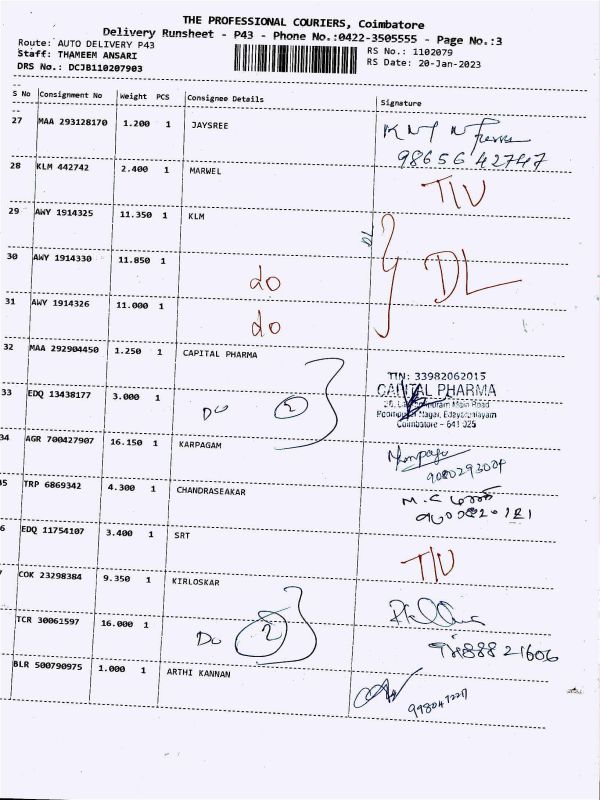 THE PROFESSIONAL COURIERS, Coimbatore
Delivery Runsheet - P43 - Phone No.:0422-3505555 - Page No.:3
Route: AUTO DELIVERY P43 RS No.: 1102079
Staff: THAMEEM ANSARI RS Date: 20-Jan-2023
DRS No.: DCJB110207903
S No Consignment No Weight PCS Consignee Details Signature
27 MAA 293128170 1.200 1 JAYSREE
98656 42747
28 KLM 442742 2.400 1 MARWEL T/U
29 AWY 1914325 11.350 1 KLM
30 AWY 1914330 11.850 1 do DL
31 AWY 1914326 11.000 1 do
32 MAA 292904450 1.250 1 CAPITAL PHARMA
TIN: 33982062015
CAPITAL PHARMA
Main Road
Nagar, Edayarpalayam
Coimbatore - 641 025
33 EDQ 13438177 3.000 1 Do 2
34 AGR 700427907 16.150 1 KARPAGAM
35 TRP 6869342 4.300 1 CHANDRASEAKAR
M.C
6 EDQ 11754107 3.400 1 SRT T/U
7 COK 23298384 9.350 1 KIRLOSKAR
TCR 30061597 16.000 1 Do 2
BLR 500790975 1.000 1 ARTHI KANNAN